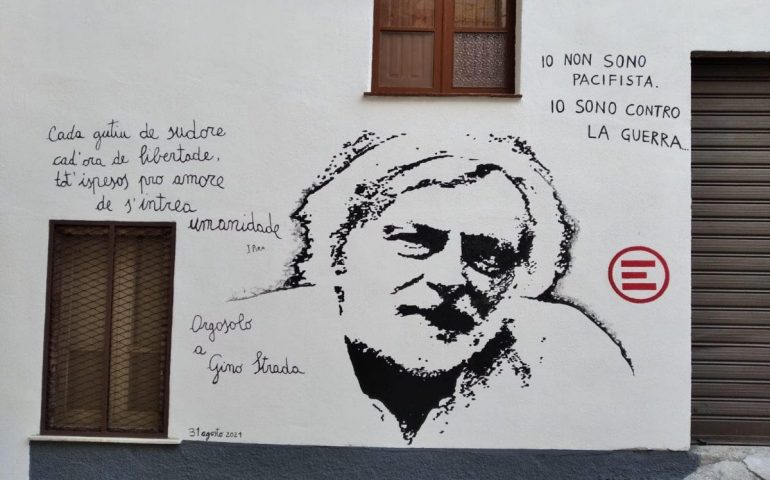 IO NON SONO
PACIFISTA.
IO SONO CONTRO
LA GUERRA...
Cada gutiu de sudore
cad'ora de libertade,
tot'ispesos pro amore
de s'intrea
umanidade
Orgosolo
a
Gino Strada
31 agosto 2021
E